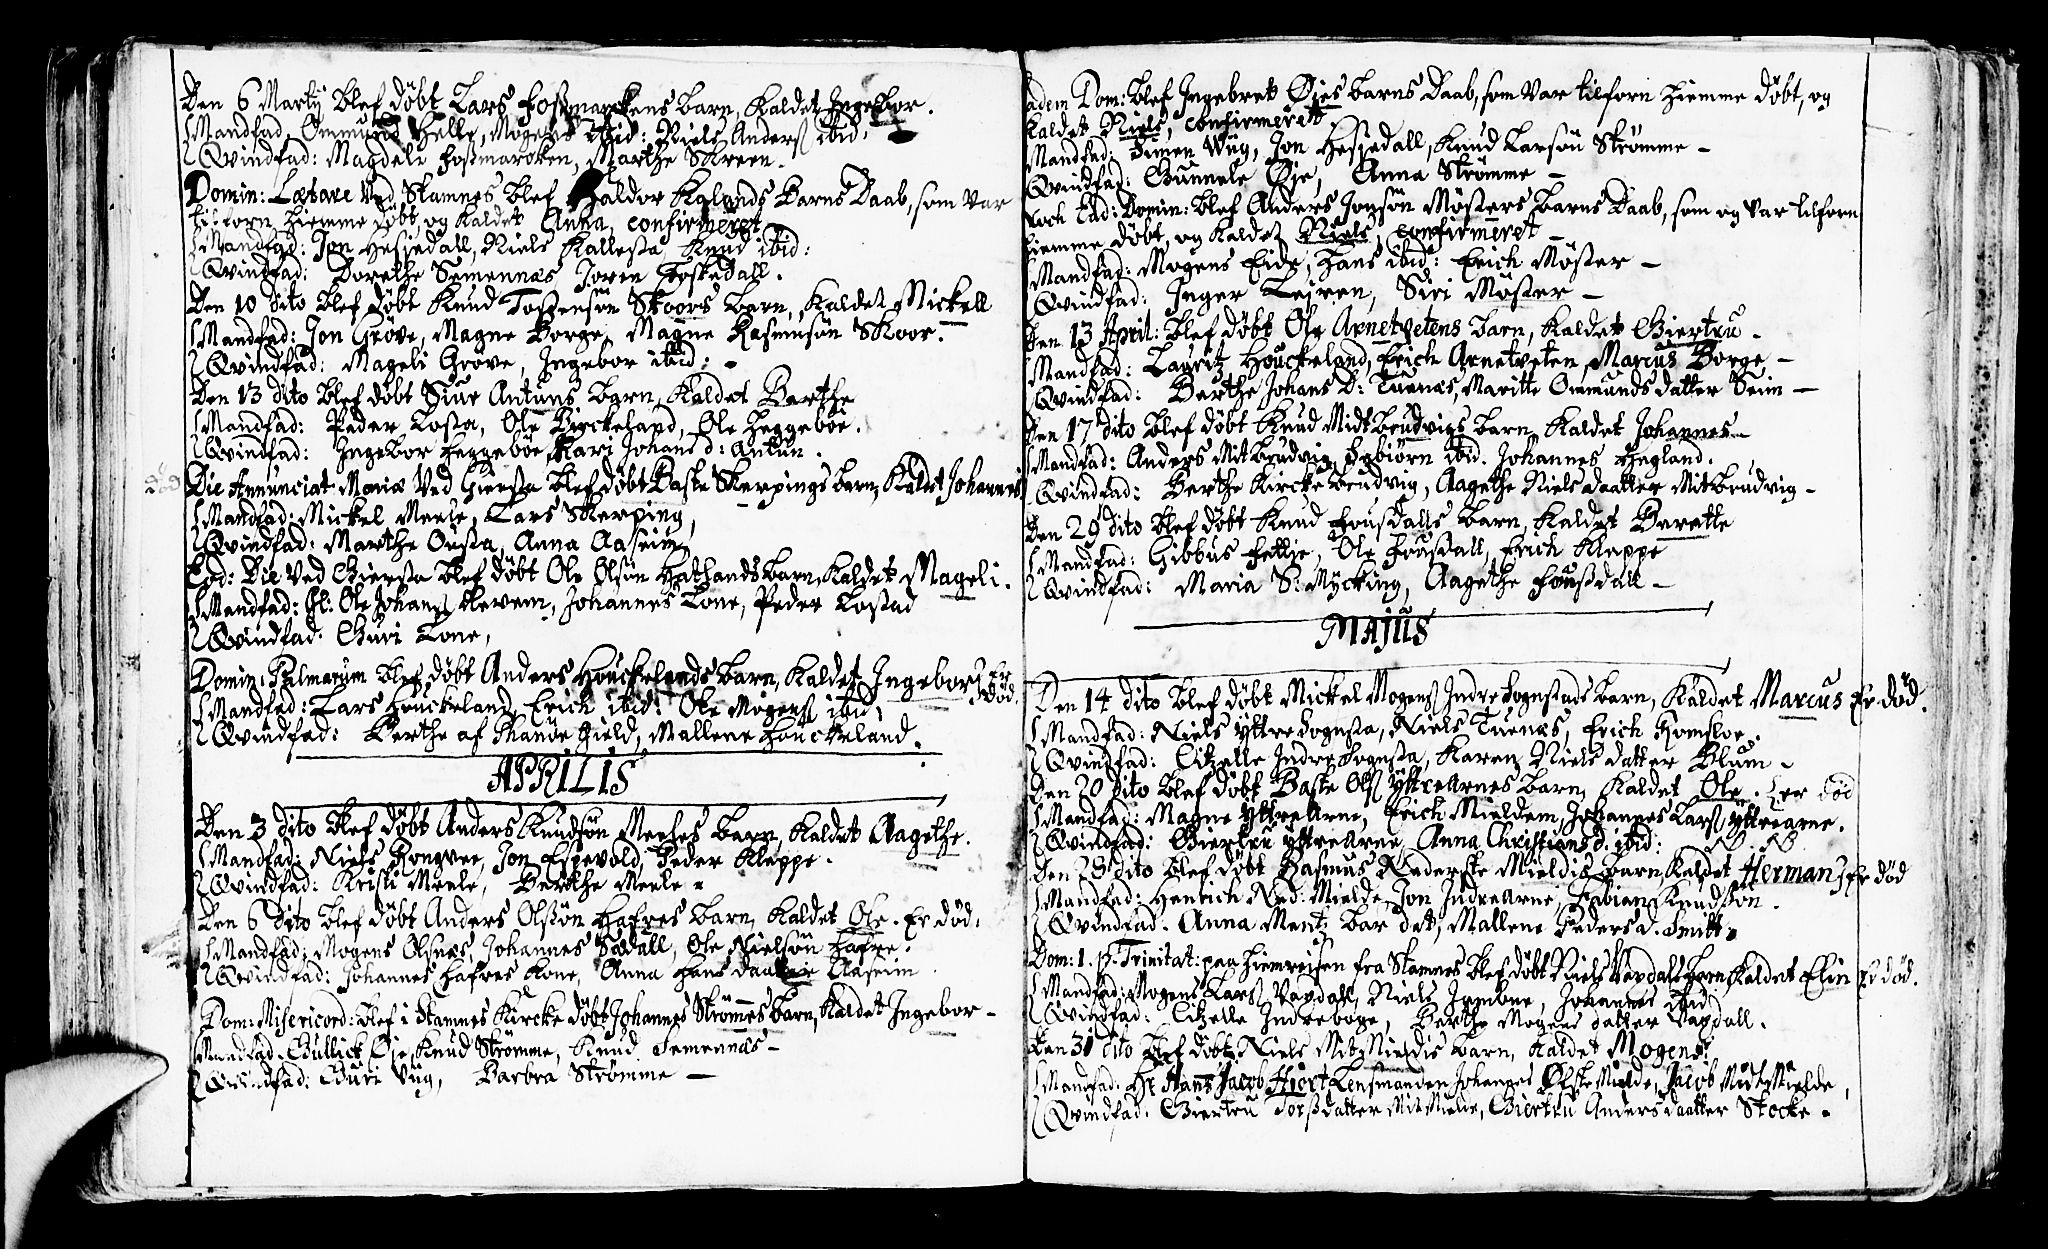 Den 6 Martij blef döbt Lars Fossmarckens barn, kaldet Ingebor.
Mandfad. Ommund Helle, Mogens ibid: Niels Anders ibid.
Qvindfad: Magdeli Fossmarcken, Marthe Skreen.
Domin: Lætare ved Stamnes blef Haldor Kalands Barns Daab, som var
tilforn hiemme döbt, og kaldet Anna, confirmeret
Mandfad: Jon Hessiedall, Niels Kallesta, Knud ibid:
Qvindfad: Dorethe Semennæs, Joren
Den 10 dito blef döbt Knud Tostensön Skoors barn, kaldet Mickell
Mandfad: Jon Gröve, Magne Borge, Magne Rasmusön Skoor.
Qvindfad: Mageli Gröve, Ingebor ibid:
Den 13 dito blef döbt Siur Antuns barn, kaldet Berthe
Mandfad: Peder Losta, Ole Birckeland, Ole Heggeböe.
Qvindfad: Ingebor Heggeböe, Kari Johans d: Antun.
död Die Annunciat: Mariæ ved Giersta blef döbt Baste Skerpings barn, kaldet Johannes
Mandfad: Mickel Meele, Lars Skerping,
Qvindfad: Marthe Ousta, Anna Aaseim
Eod: Die ved Giersta blef döbt Ole Olsön Hatlands barn, kaldet Mageli.
Mandfad: Ole Johans Johannes Lone, Peder Lostad
Qvindfad: Guri Lone,
Domin: Palmarum blef döbt Anders Houckelands barn, kaldet Ingebor Er död.
Mandfad: Lars Houckeland, Erich ibid: Ole Mogens ibid,
Qvindfad: Berthe af Manöe Gield, Mallene Houckeland.
APRILIS
Den 3 dito blef döbt Anders Knudsön Meeles barn, kaldet Aagethe.
Mandfad: Niels Rongvee, Jon Espevold, Peder Kleppe.
Qvindfad: Kristi Meele, Berthe Meele
Den 6 dito blef döbt Anders Olssön Hafres barn, kaldet Ole. Er död.
Mandfad: Mogens Olsnæs, Johannes Dödall, Ole Nielsön Hafre.
Qvindfad: Johannes Hafres kone, Anna Hans daatter Aaseim
Dom: Misericord: blef i Stamnes Kircke döbt Johannes Strömmes barn, kaldet Ingebor
Mandfad. Gullick Öje, Knud Strömme, Knud Semennæs
Qvindfad: Guri Vüg, Barbra Strömme
adem Dom: blef Ingebret Öjes barns Daab, som var tilforn hiemme döbt, og
kaldet Niels, confirmeret
Mandfad: Simen Wüg, Jon Hessiedall, Knud Larsön Strömme
Qvindfad: Gunnele Öje, Anna Strömme
Noch Ead: Domin: blef Anders Jonsön Mösters barns Daab, som og var tilforn
hiemme döbt, og kaldet Niels, confirmeret
Mandfad: Mogens Eide, Hans ibid: Erich Möster
Qvindfad: Inger Leiren, Siri Möster
Den 13 April: blef döbt Ole Arnetvetens barn, kaldet Giertru.
Mandfad: Lauritz Houckeland, Erich Arnetveten, Marcus Borge
Qvindfad: Berthe Johans D: Tuenæs, Maritte Ommunds datter Seim
Den 17 dito blef döbt Knud Midtbrudvigs barn, kaldet Johannes
Mandfad: Anders Mitbrudvig, Esbiörn ibid. Johannes Hegland.
Qvindfad: Berthe Kirckebrudvig, Aagethe Niels daatter Mitbrudvig
Den 29 dito blef döbt Knud Foussdalls barn, kaldet Beratte
Mandfad: Gibbus Fettie, Ole Foussdall, Erich Kleppe
Qvindfad: Maria S: Mycking, Aagethe Foussdall
MAJUS
Den 14 dito blef döbt Mickel Mogens Indre Fognstads barn, kaldet Marcus Er död.
Mandfad: Niels Yttrefognsta, Niels Tuenæs, Erich Romsloe.
Qvindfad: Citzelle Indre Fognsta, Karen Niels datter Blum
Den 20 dito blef döbt Baste Ols Yttrearnes barn, kaldet Ole. er död
Mandfad: Magne Yttrearne, Erich Mieldem, Johannes Lars Yttrearne.
Qvindfad: Giertru Yttrearne, Anna Christians d. ibid:
Den 28 dito blef döbt Rasmus Nederste Mieldis barn, kaldet Herman Er död
Mandfad: Henrich Ned: Mielde, Jon Indrearne, Fabian Knudsön.
Qvindfad. Anna Mentz Mallene Peders d. Smitt
Dom: 1. p. Trinitat: paa Hiemreisen fra Stamnes blef döbt Niels Vaxdals barn, kaldet Elin Er död.
Mandfad: Mogens Lars Vaxdall, Niels Johannes ibid
Qvindfad: Citzelle Indreboge, Berthe Mogens datter Vaxdall.
Den 31 dito blef döbt Niels Mit Mieldis barn, kaldet Mogens.
Mandfad. Hr Hans Jacob Hiort Lensmanden Johannes Öfste Mielde, Jacob Midt Mielde,
Qvindfad. Giertru datter Mit Mielde, Giertru Anders daatter Stocke.